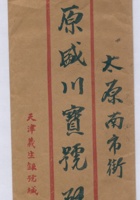 太原南市街
原盛川寶號
天津義生號緘